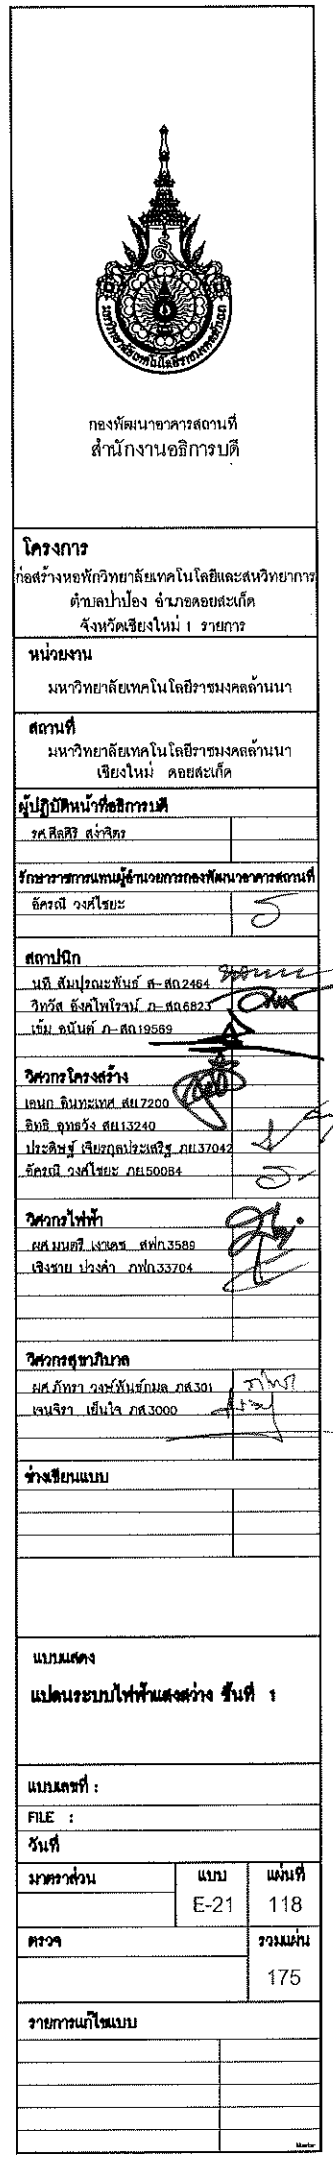 มหาวิทยาลัยเทคโนโลยีราชมงคลล้านนา
กองพัฒนาอาคารสถานที่
สำนักงานอธิการบดี
โครงการ
ก่อสร้างหอพักวิทยาลัยเทคโนโลยีและสหวิทยาการ
ตำบลป่าป้อง อำเภอดอยสะเก็ด
จังหวัดเชียงใหม่ 1 รายการ
หน่วยงาน
มหาวิทยาลัยเทคโนโลยีราชมงคลล้านนา
สถานที่
มหาวิทยาลัยเทคโนโลยีราชมงคลล้านนา
เชียงใหม่ ดอยสะเก็ด
ผู้ปฏิบัติหน้าที่อธิการบดี
รศ.ศีลศิริ สง่าจิตร
รักษาราชการแทนผู้อำนวยการกองพัฒนาอาคารสถานที่
อัครณี วงศ์ไชยะ
สถาปนิก
นที สัมปุรณะพันธ์ ส-สถ2464
วิทวัส อังคไพโรจน์ ภ-สถ6823
เข้ม อนันต์ ภ-สถ19569
วิศวกรโครงสร้าง
เอนก อินทะเทศ สย7200
อิทธิ อุทธวัง สย13240
ประดิษฐ์ เจียรกุลประเสริฐ ภย37042
อัครณี วงศ์ไชยะ ภย50064
วิศวกรไฟฟ้า
ผศ.มนตรี เงาเดช สฟก3589
เชิงชาย ปวงคำ ภฟก33704
วิศวกรสุขาภิบาล
ผศ.ภัทรา วงษ์พันธ์กมล ภส301
เจนจิรา เย็นใจ ภส3000
ช่างเขียนแบบ
แบบแสดง
แปลนระบบไฟฟ้าแสงสว่าง ชั้นที่ 1
แบบเลขที่ :
FILE :
วันที่
มาตราส่วน แบบ แผ่นที่
E-21 118
ตรวจ รวมแผ่น
175
รายการแก้ไขแบบ
Master